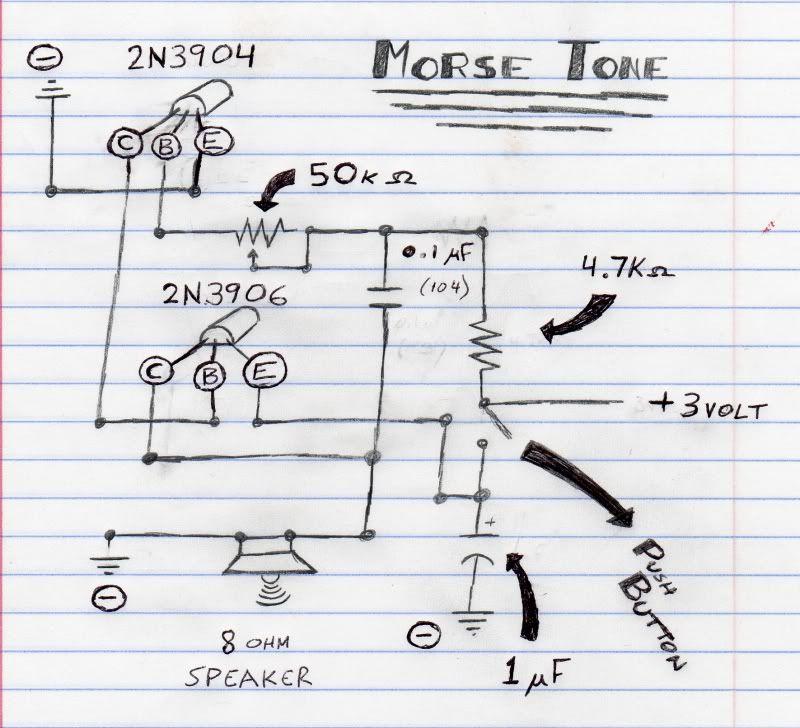 MORSE TONE
2N3904
C B E
50K Ω
0.1 µF
(104)
4.7KΩ
2N3906
C B E
+3 VOLT
PUSH
BUTTON
+
8 OHM
SPEAKER
1 µF